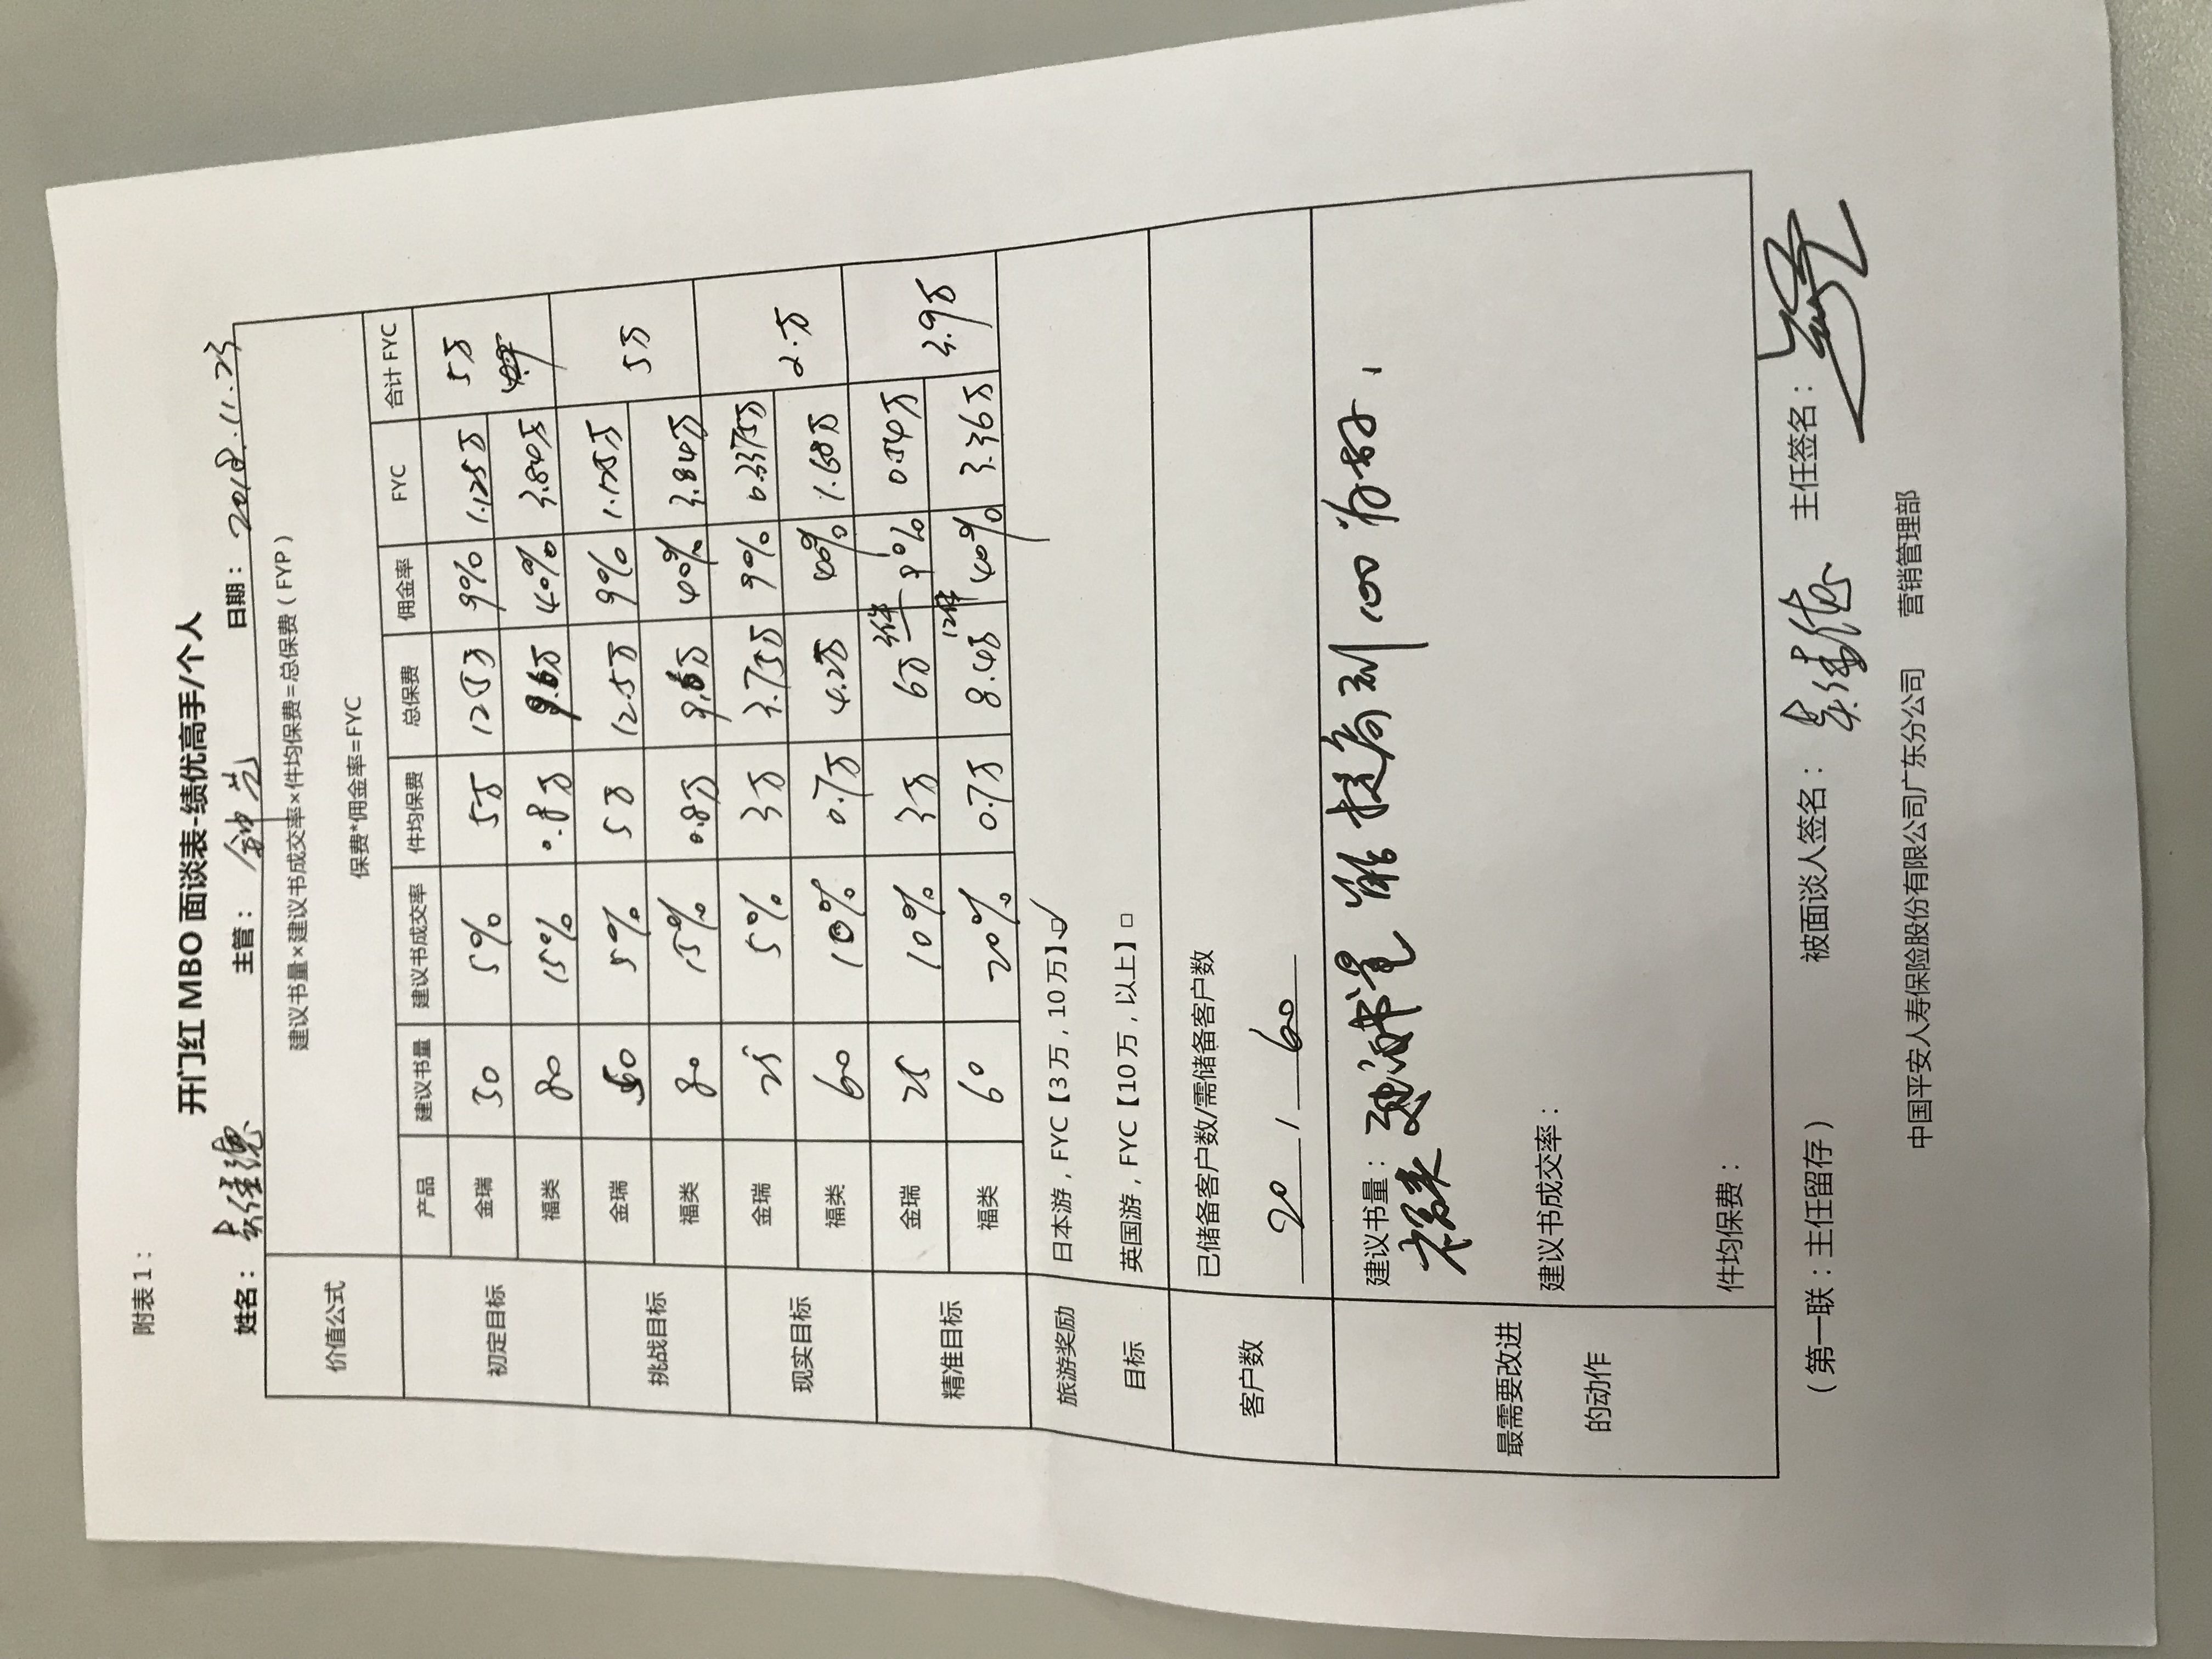 附表1：
开门红 MBO 面谈表-绩优高手/个人
姓名： 主管： 日期：2018.11.23
价值公式 建议书量×建议书成交率×件均保费=总保费（FYP）
保费*佣金率=FYC
产品 建议书量 建议书成交率 件均保费 总保费 佣金率 FYC 合计 FYC
初定目标 金瑞 50 5% 5万 12.5万 9% 1.125万 5万
福类 80 15% 0.8万 9.6万 40% 3.84万
挑战目标 金瑞 50 5% 5万 12.5万 9% 1.125万 5万
福类 80 15% 0.8万 9.6万 40% 3.84万
现实目标 金瑞 25 5% 3万 3.75万 9% 0.3375万 2.万
福类 60 10% 0.7万 4.2万 40% 1.68万
精准目标 金瑞 25 10% 3万 6万 9% 0.54万 3.9万
福类 60 20% 0.7万 8.4万 12件 40% 3.36万
旅游奖励 日本游，FYC【3万，10万】☑
目标 英国游，FYC【10万，以上】□
客户数 已储备客户数/需储备客户数
20 / 60
最需要改进 建议书量： 建议书量 能提高到100为好.
的动作 福类
建议书成交率：
件均保费：
（第一联：主任留存） 被面谈人签名： 主任签名：
中国平安人寿保险股份有限公司广东分公司 营销管理部